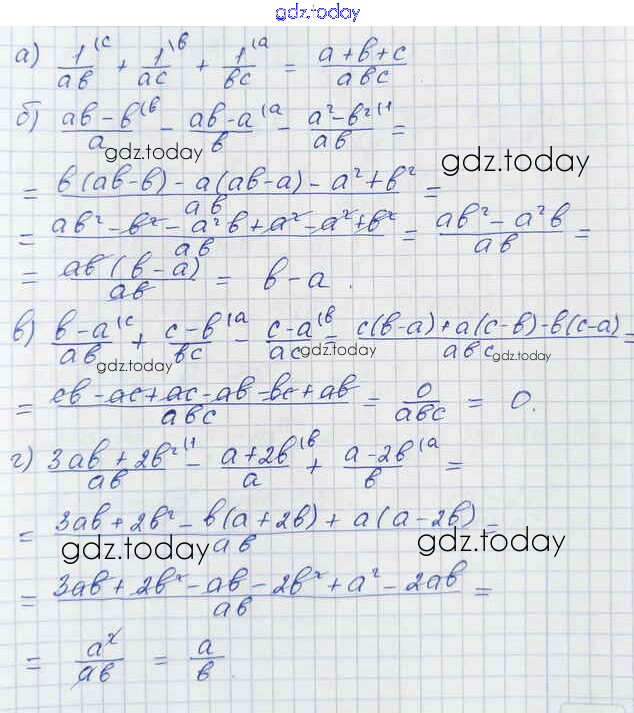 gdz.today
а) 1/ab (c + 1/ac (b + 1/bc (a = (a+b+c)/abc
б) (ab-b)/a (b - (ab-a)/b (a - (a²-b²)/ab (1 =
gdz.today gdz.today
= (b(ab-b) - a(ab-a) - a²+b²)/ab =
= (ab² - b² - a²b + a² - a² + b²)/ab = (ab² - a²b)/ab =
= ab(b-a)/ab = b-a.
в) (b-a)/ab (c + (c-b)/bc (a - (c-a)/ac (b = (c(b-a)+a(c-b)-b(c-a))/abc =
gdz.today gdz.today gdz.today
= (cb - ac + ac - ab - bc + ab)/abc = 0/abc = 0.
г) (3ab+2b²)/ab (1 - (a+2b)/a (b + (a-2b)/b (a =
= (3ab+2b² - b(a+2b) + a(a-2b))/ab =
gdz.today gdz.today
= (3ab+2b² - ab - 2b² + a² - 2ab)/ab =
= a²/ab = a/b.